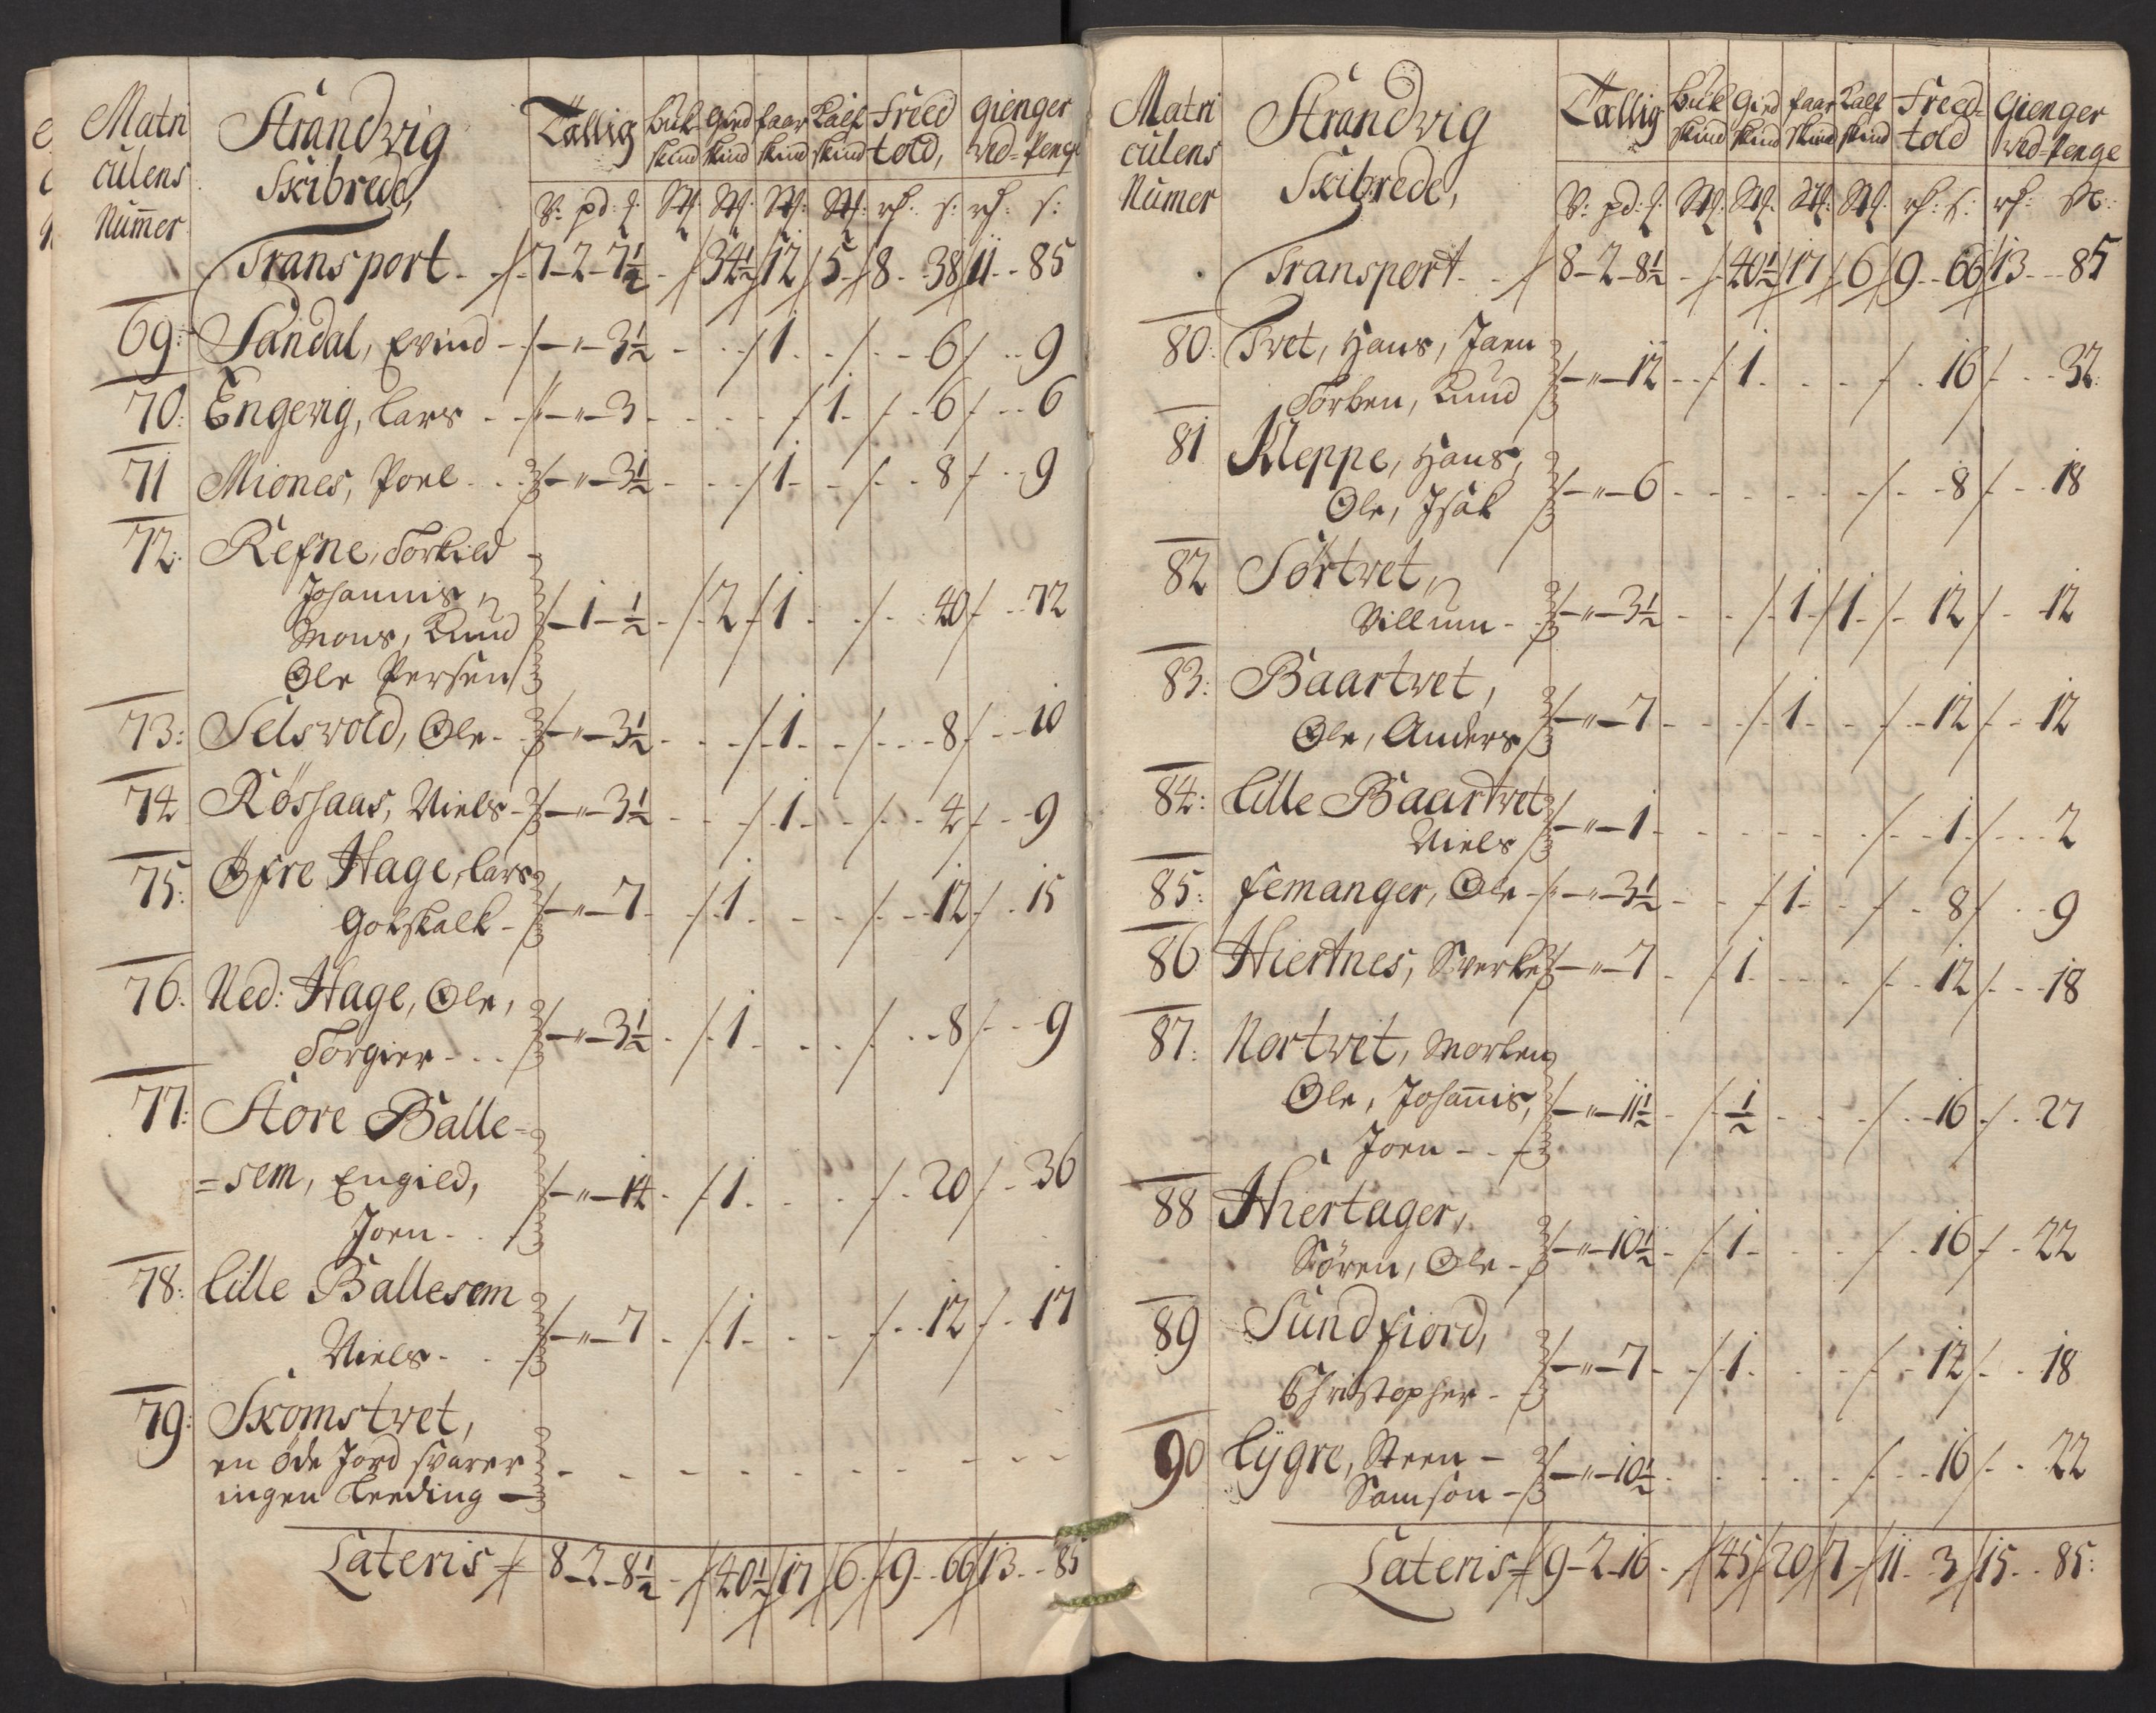 Matri
culens
Numer
Strandvig
Skibrede,
Tallig
Buk
skind
Gied
skind
faar
skind
Kalf
skind
Freed
told,
gienger
ved=Penge
V: pd: Stk: Stk: Stk: Stk: s: s:
Transport - 7-2-7½ - 34½ 12 5 8 - 38 11 - 85
69: Sandal, Evind - " - 3½ - 1 - 6 - 9
70: Engevig, Lars - " - 3 - 1 - 6 - 6
71 Miones, Poel - " - 3½ - 1 - 8 - 9
72: Refne, Torkild
Johannis,
Mons, Knud - 1 - ½ - 2 - 1 - 40 - 72
Ole Persen
73: Selsvold, Ole - " - 3½ - 1 - 8 - 10
74 Rössaas, Niels - " - 3½ - 1 - 4 - 9
75: Öfre Hage, Lars
Gotskalk - " - 7 - 1 - 12 - 15
76: Ned: Hage, Ole,
Torgier - " - 3½ - 1 - 8 - 9
77: Store Balle-
=sem, Engild, - " - 14 - 1 - 20 - 36
Joen
78: Lille Ballesem
Niels - " - 7 - 1 - 12 - 17
79: Skomstvet,
en öde Jord svarer
ingen Leeding
Lateris 8-2-8½ - 40½ 17 6 9 - 66 13 - 85
Matri
culens
Numer
Strandvig
Skibrede,
Tallig
Buk
skind
Gied
skind
faar
skind
Kalf
skind
Freed=
told
Gienger
ved=Penge
V: pd: Stk: Stk: Stk: Stk: s:
Transport - 8-2-8½ - 40½ 17 6 9 - 66 13 - 85
80: Tvet, Hans, Joen
Torben, Knud - " - 12 - 1 - 16 - 32:
81 Kleppe, Hans,
Ole, Isak - " - 6 - 8 - 18
82 Sörtvet,
Villum - " - 3½ - 1 - 1 - 12 - 12
83: Baartvet,
Ole, Anders - " - 7 - 1 - 12 - 12
84: Lille Baartvet
Niels - " - 1 - 1 - 2
85: Femanger, Ole - " - 3½ - 1 - 8 - 9
86 Hiertnes, Sverke - " - 7 - 1 - 12 - 18
87: Nortvet, Morten
Ole, Johannis, - " - 11½ - ½ - 16 - 27
Joen
88 Hiertager,
Sören, Ole - " - 10½ - 1 - 16 - 22
89 Sundfiord,
Christopher - " - 7 - 1 - 12 - 18
90 Lÿgre, Steen -
Samson - " - 10½ - 16 - 22
Lateris 9-2-16 - 45 20 7 11 - 3 15 - 85: